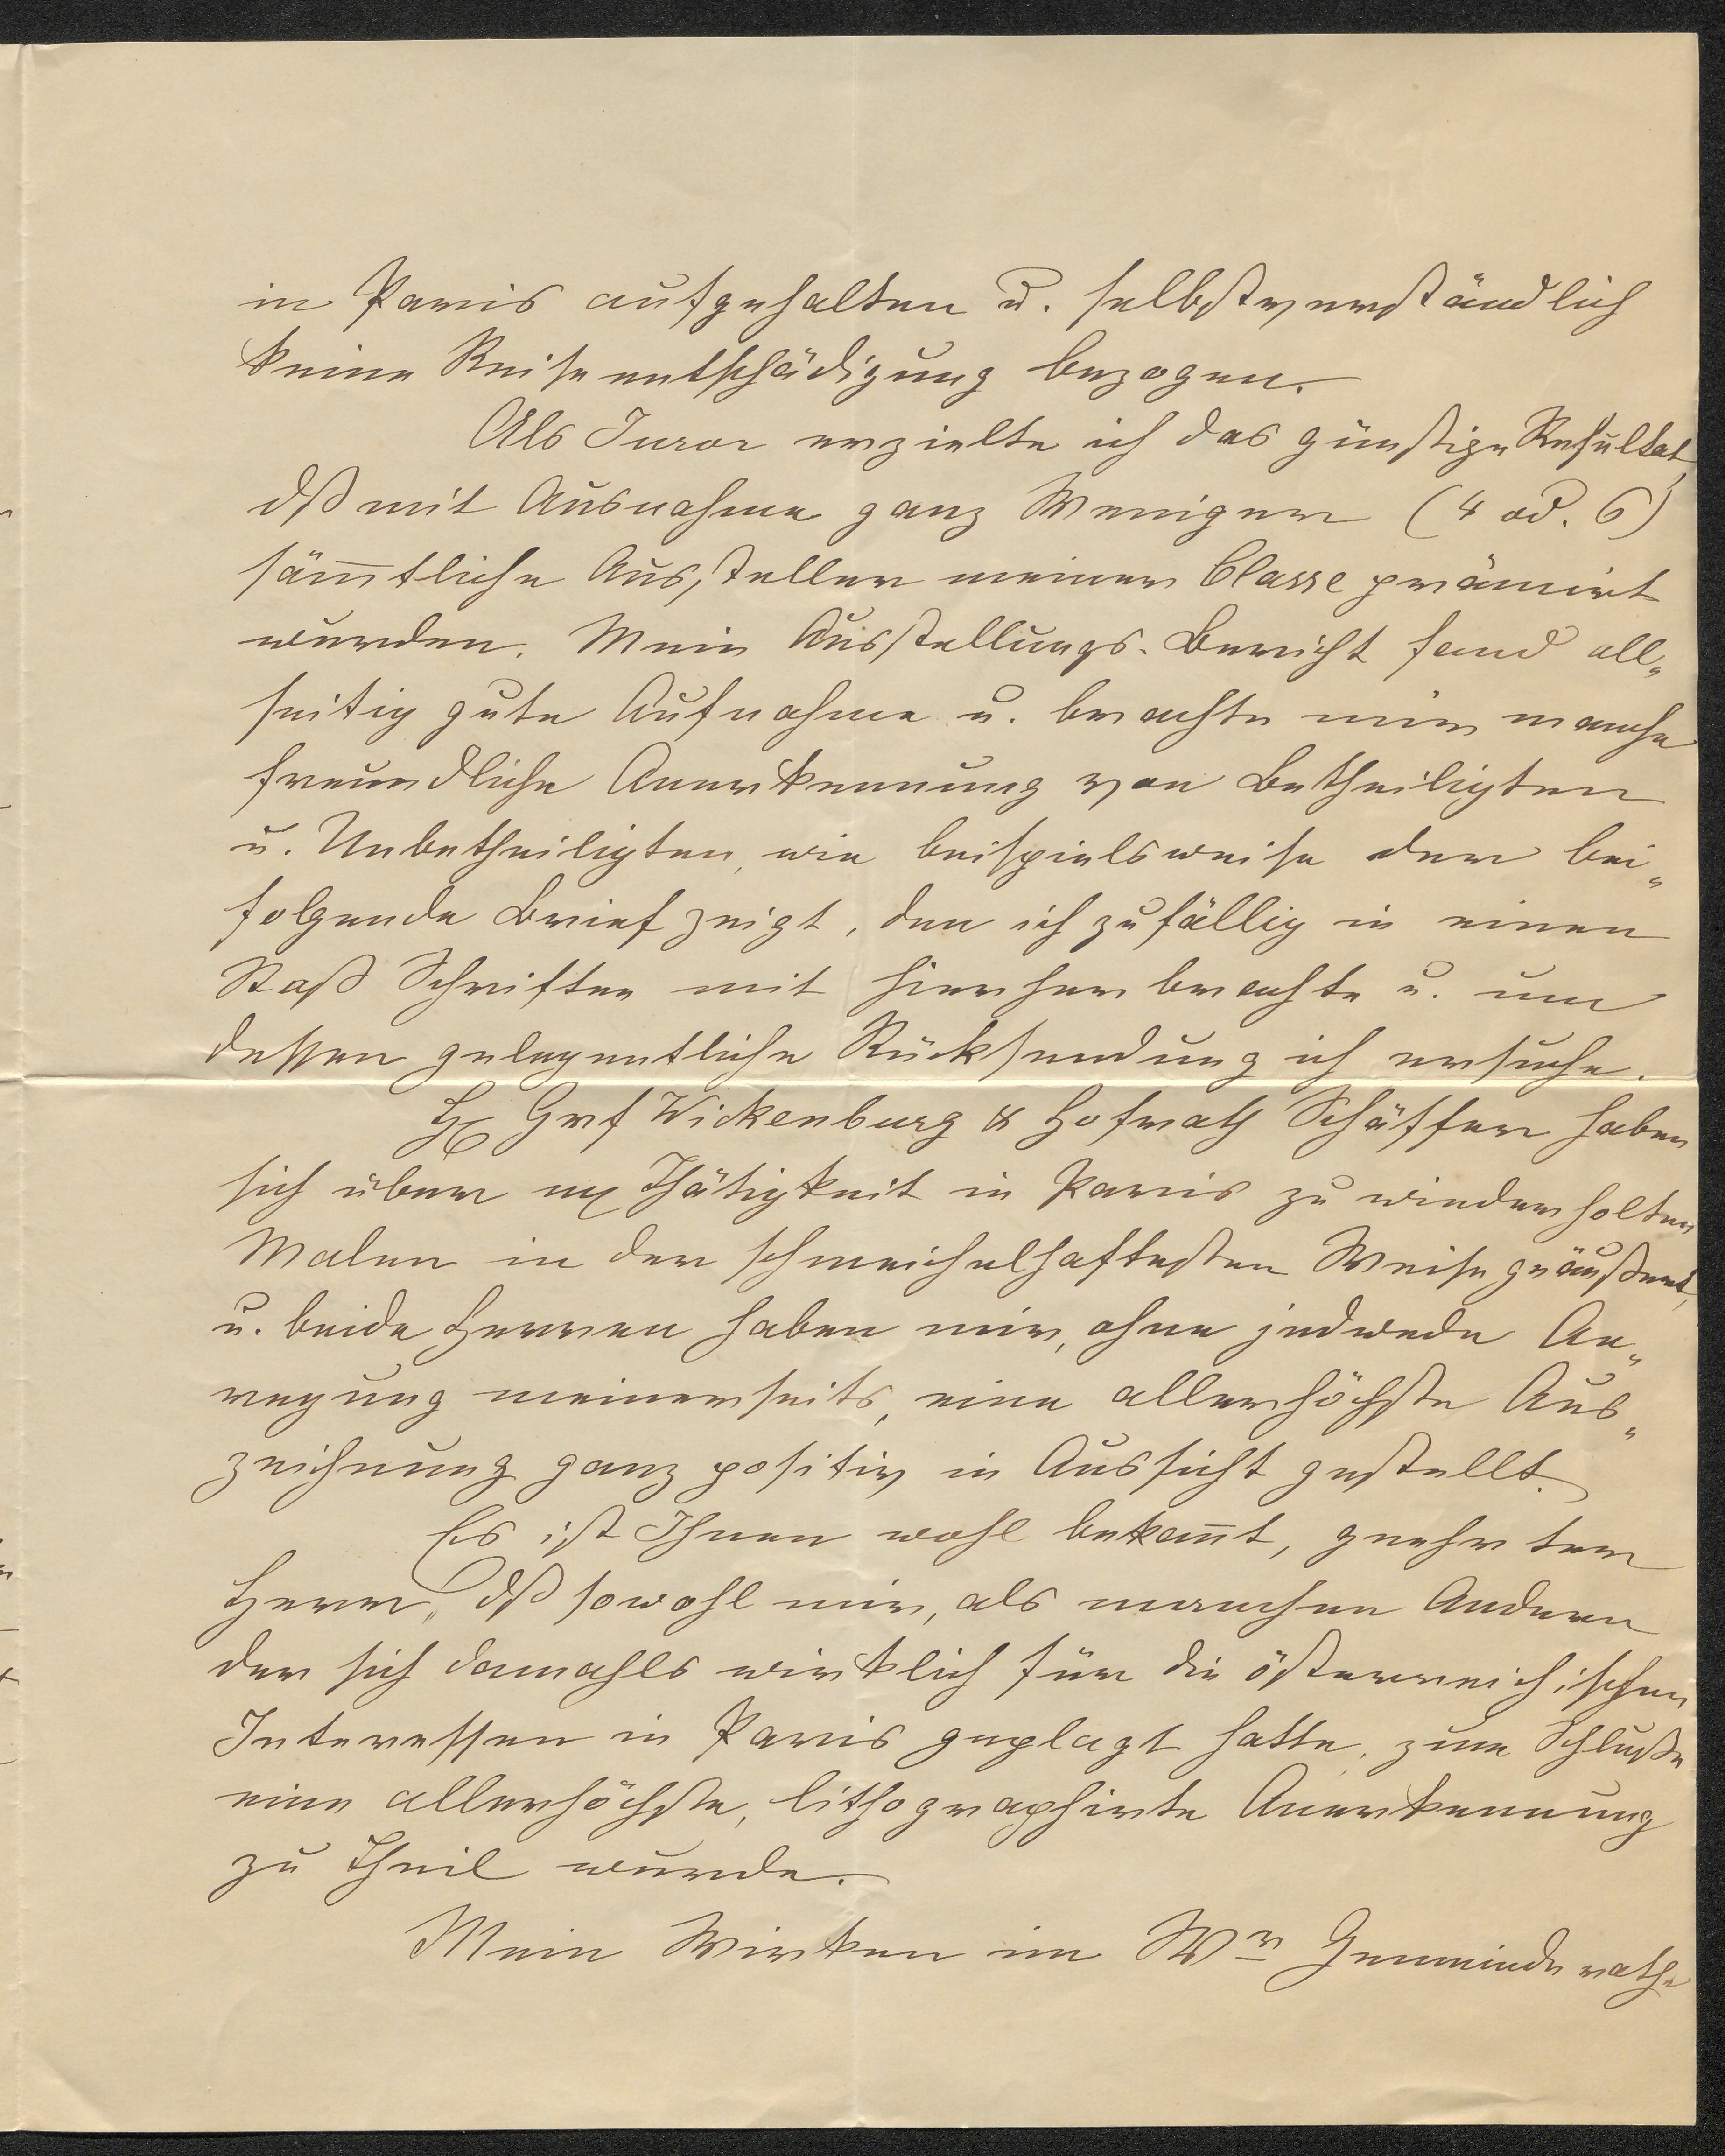 in Paris aufgehalten u. selbstverständlich
keine Reiseentschädigung bezogen.
Als Juror erzielte ich das günstige Resultat,
dß mit Ausnahme ganz Weniger (4 od. 6)
säm̅tliche Aussteller meiner Classe prämiirt
wurden. Mein Ausstellungs-Bericht fand all„
seitig gute Aufnahme u. brachte mir manche
freundliche Anerkennung von Betheiligten
u. Unbetheiligten, wie beispielsweise der bei„
folgende Brief zeigt, den ich zufällig in einen
Stoß Schriften mit hierher brachte u. um
dessen gelegentliche Rücksendung ich ersuche.
H Grf Wickenburg & Hofrath Schäffer haben
sich über m Thätigkeit in Paris zu wiederholten
Malen in der schmeichelhaftesten Weise geäußert,
u. beide Herren haben mir, ohne jedwede An„
regung meinerseits, eine allerhöchste Aus„
zeichnung ganz positiv in Aussicht gestellt.
Es ist Ihnen wohl bekan̅t, geehrter
Herr, dß sowohl mir, als manchen Andern
der sich damahls wirklich für die österreichischen
Interessen in Paris geplagt hatte, zum Schluße
eine allerhöchste, lithographirte Anerkennung
zu Theil wurde.
Mein Wirken im Wr Gemeinderathe